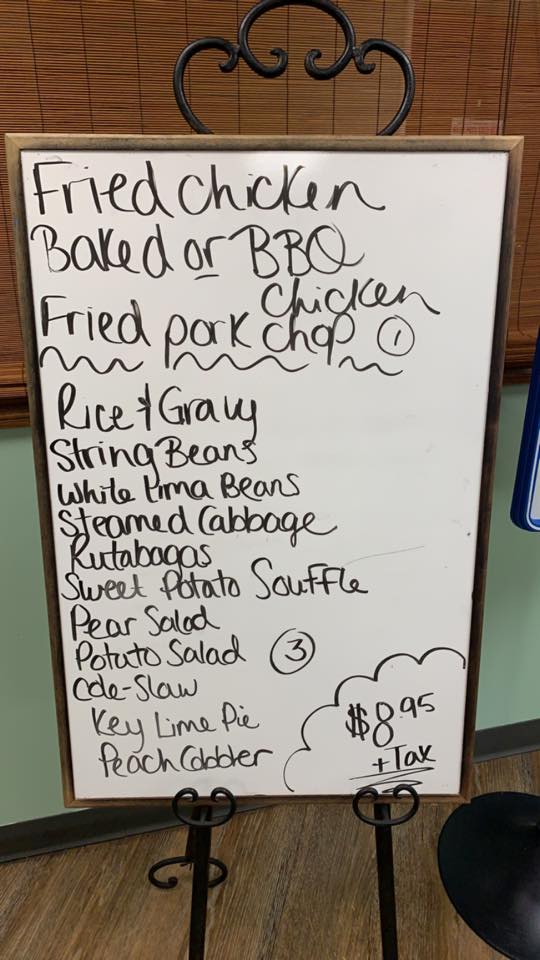 Fried chicken
Baked or BBQ
chicken
Fried pork chop 1
Rice & Gravy
String Beans
White Lima Beans
Steamed Cabbage
Rutabagas
Sweet Potato Souffle
Pear Salad
Potato Salad 3
Cole-Slaw
Key Lime Pie
Peach Cobbler
$8.95
+Tax